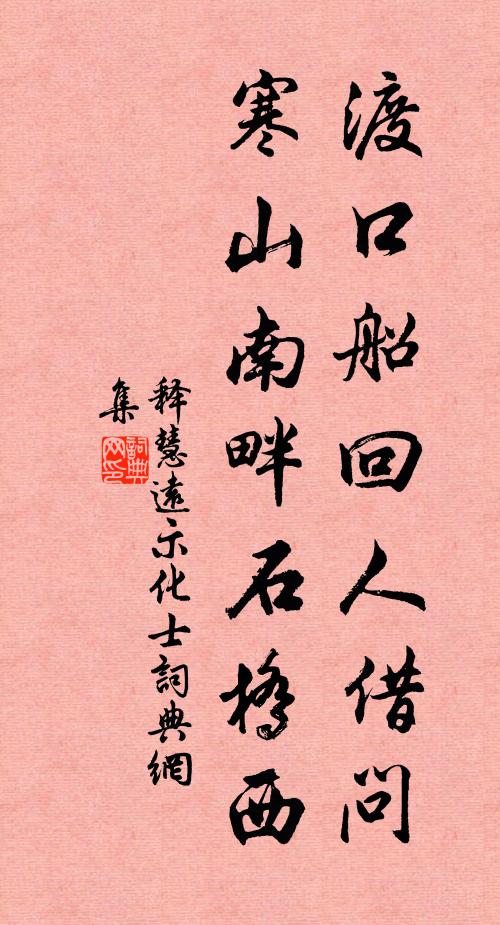 渡口船回人借问
寒山南畔石橋西
释慧遠示化士詞典網
集
詞典網印